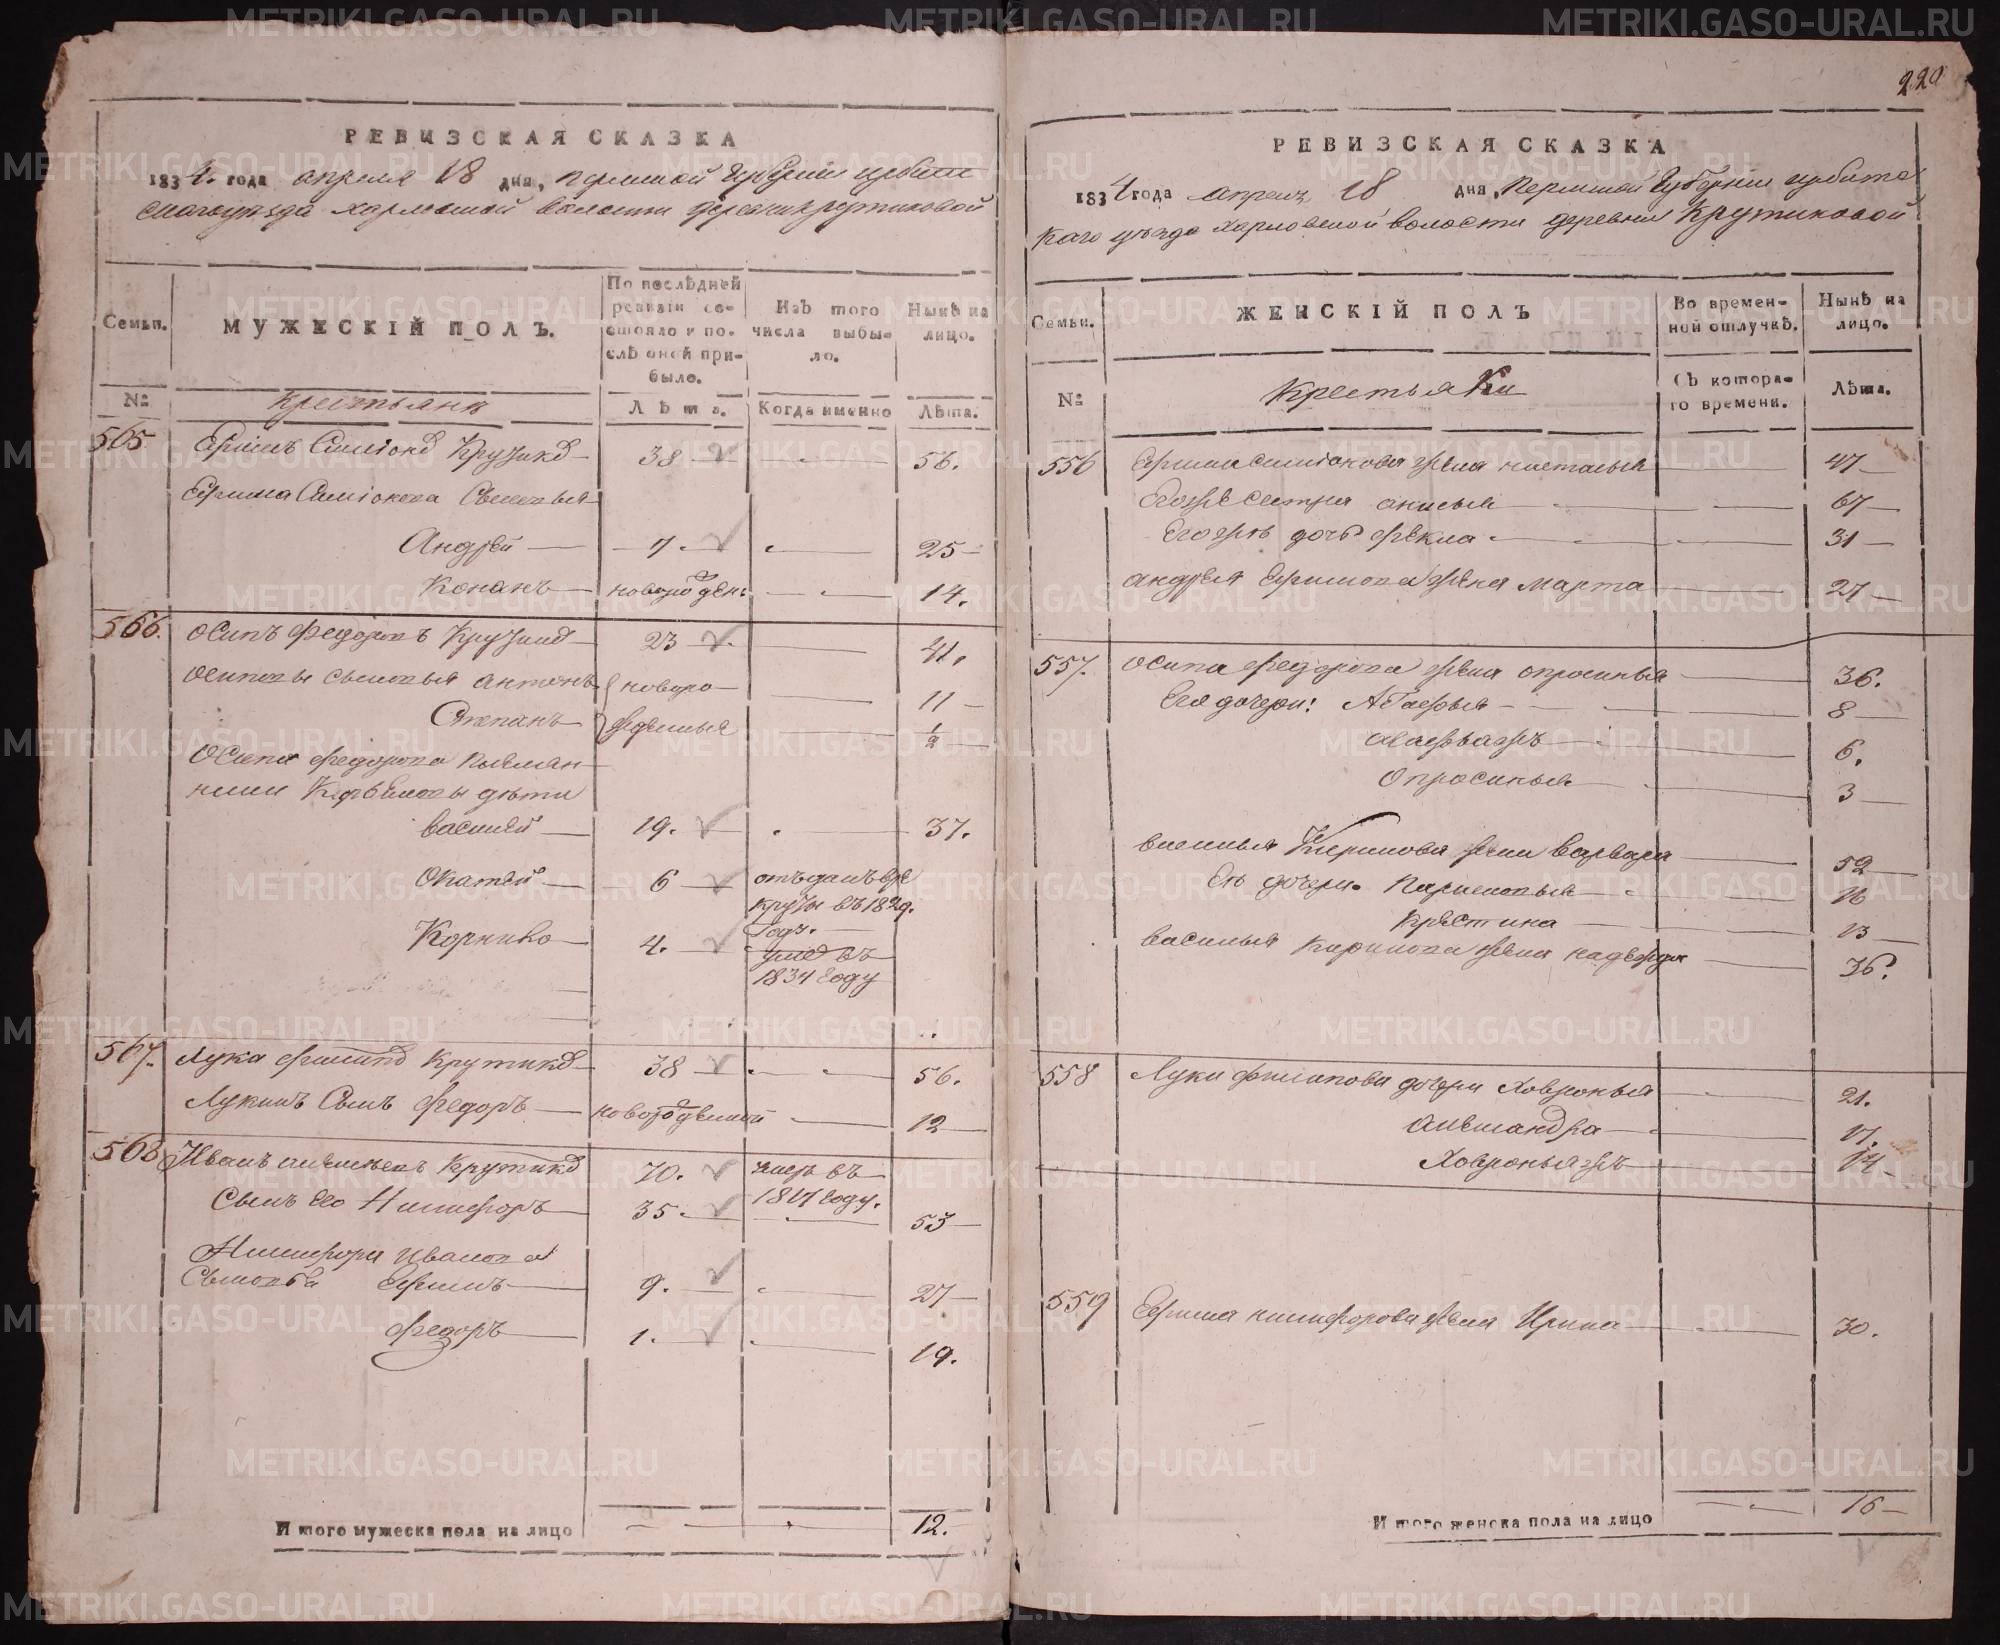 220
РЕВИЗСКАЯ СКАЗКА
1834. года апреля 18 дня, пермской Губернии ирбит
скаго уезда харловской волости деревни крутиковой
Семьи.
МУЖЕСКІЙ ПОЛЪ.
По послѣдней ревизіи состояло и послѣ оной прибыло.
Изъ того числа выбыло.
Нынѣ на лицо.
№
крестьяне
Лѣта.
Когда именно
Лѣта.
565 Ефимъ Симіоновъ 38 56.
Ефима Симіонова Сыновья
Андрей 7. 25
Кононъ новорожден: 14.
566. осипъ Федоровъ 23 41.
осиповы сыновья антонъ новоро 11
Степанъ жденныя 1/2
осипа федорова племян
ники дѣти
василей 19. 37.
6 отъданъ въ ре
круты въ 1829.
Году.
Корнило 4. умре въ
1831 году
567. Лука Крутиковъ 38 56.
Лукинъ Сынъ Федоръ новорожденной 12
568 Иванъ Крутиковъ 70. умре въ
1817 году.
Сынъ его Никифоръ 35. 53
Никифора Иванова
Сыновья Ефимъ 9. 27
федоръ 1. 19.
Итого мужеска пола на лицо 12.
РЕВИЗСКАЯ СКАЗКА
1834 года апреля 18 дня, Пермской Губерніи ирбитс
каго уезда харловской волости деревни Крутиковой
Семьи.
ЖЕНСКІЙ ПОЛЪ
Во временной отлучкѣ.
Нынѣ на лицо.
№
Крестьянки
Съ котораго времени.
Лѣта.
556 Ефима симіонова жена настасья 47
Егожъ сестра анисья 67
Егожъ дочь фекла 31
андрея Ефимова жена марта 27
557. осипа федорова жена опросинья 36.
Его дочери: Агафья 8
6.
Опросинья 3
василья Кирилова жена варвара 52
Ея дочери. 16
Крестина 13
василья Кирилова жена надежда 36.
558 Луки филипова дочери Хавронья 21.
александра 17.
Хавронья жъ 14
559 Ефима никифорова жена Ирина 30.
Итого женска пола на лицо 16
METRIKI.GASO-URAL.RU